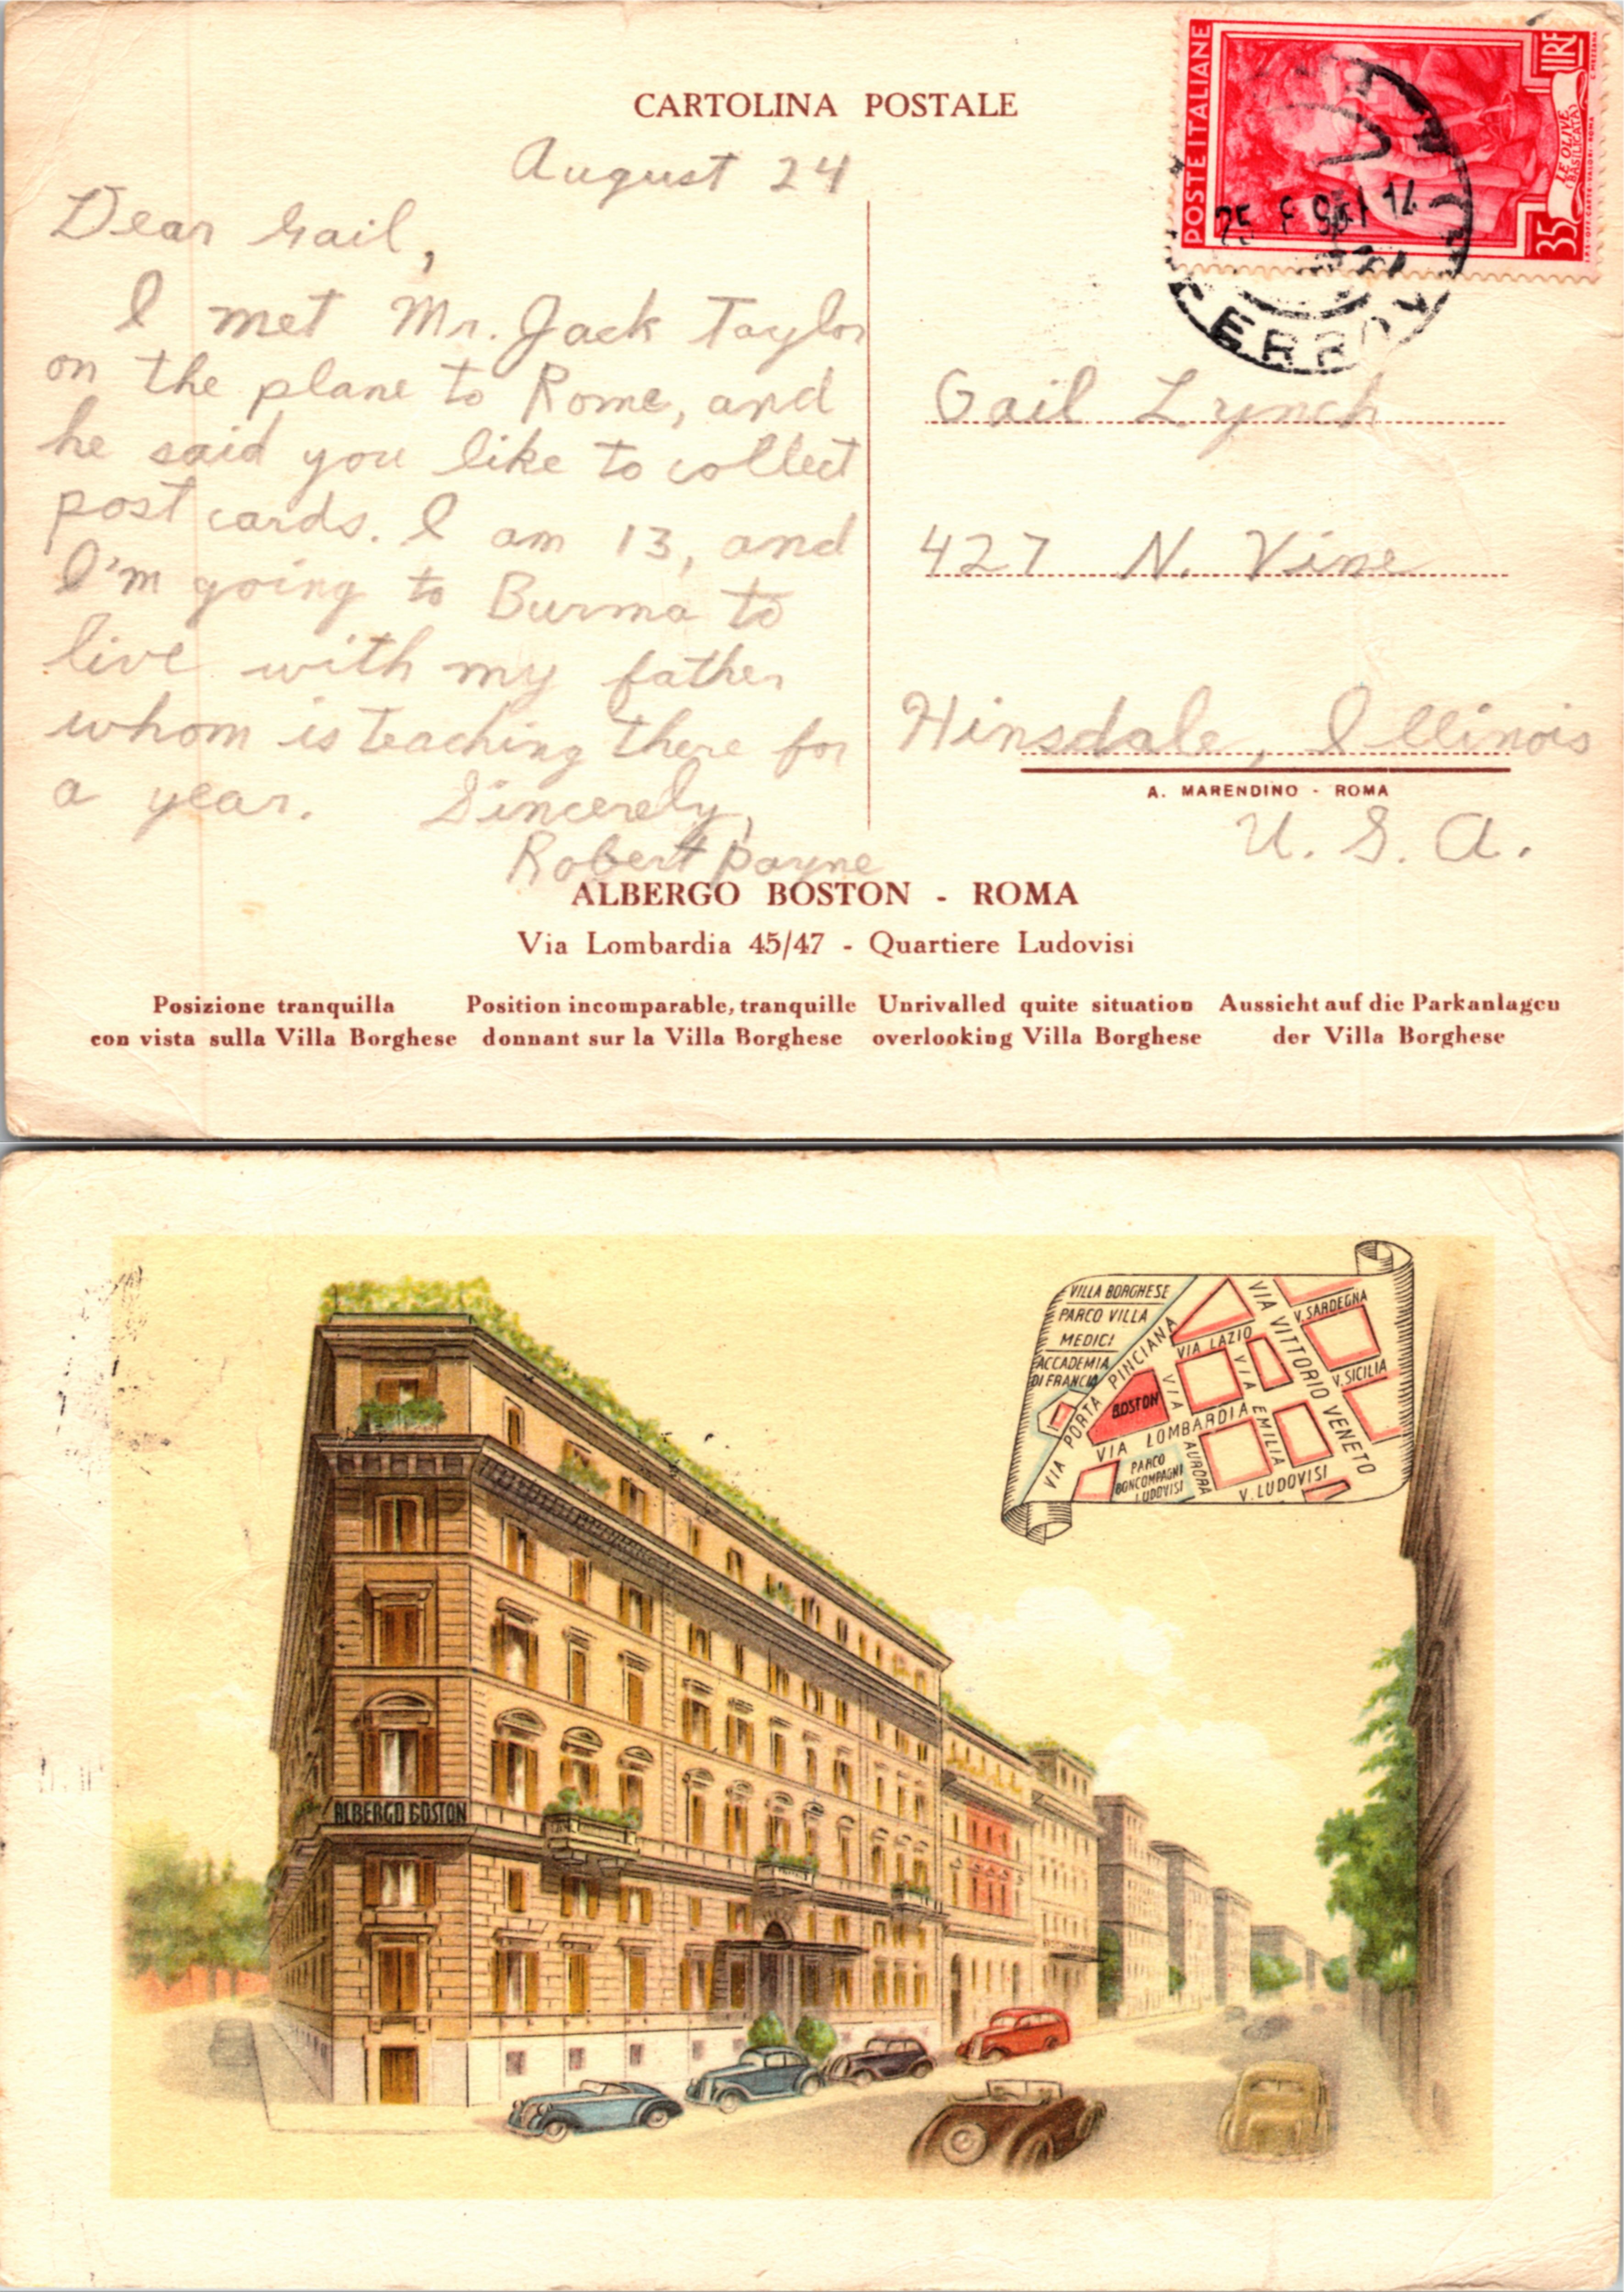 CARTOLINA POSTALE
August 24
Dear Gail,
I met Mr. Jack Taylor
on the plane to Rome, and
he said you like to collect
post cards. I am 13, and
I'm going to Burma to
live with my father
whom is teaching there for
a year. Sincerely,
Robert Payne
POSTE ITALIANE
35 LIRE
LE OLIVE
BASILICATA
C. MEZZANA
FERROV
Gail Lynch
427 N. Vine
Hinsdale, Illinois
A. MARENDINO - ROMA
U. S. A.
ALBERGO BOSTON - ROMA
Via Lombardia 45/47 - Quartiere Ludovisi
Posizione tranquilla
con vista sulla Villa Borghese
Position incomparable, tranquille
donnant sur la Villa Borghese
Unrivalled quite situation
overlooking Villa Borghese
Aussicht auf die Parkanlagen
der Villa Borghese
VILLA BORGHESE
PARCO VILLA
MEDICI
ACCADEMIA
DI FRANCIA
VIA PORTA PINCIANA
BOSTON
VIA LAZIO
VIA VITTORIO VENETO
V. SARDEGNA
V. SICILIA
VIA EMILIA
VIA AURORA
VIA LOMBARDIA
PARCO
BONCOMPAGNI
LUDOVISI
V. LUDOVISI
ALBERGO BOSTON